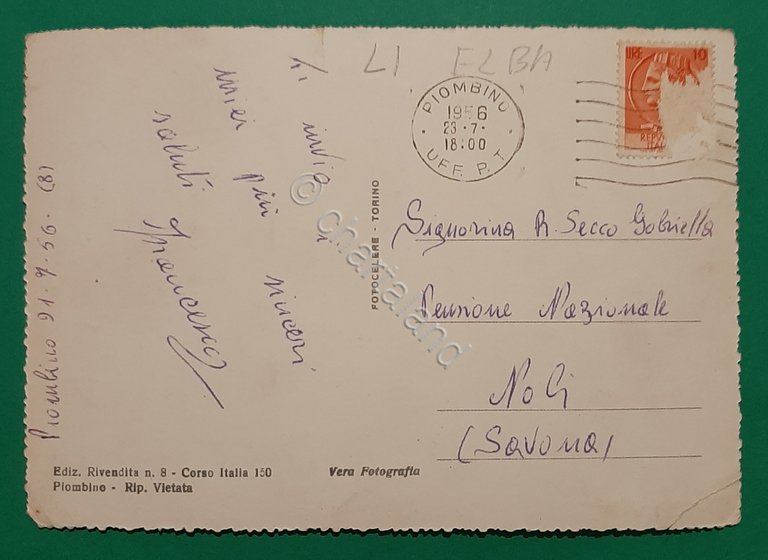 LI ELBA
PIOMBINO
1956
23·7·
18·00
UFF. P. T.
LIRE 10
Ti invio i
miei più sinceri
saluti
Francesco
Piombino 21.7.56. (8)
FOTOCELERE - TORINO
Signorina R. Secco Gobriella
Pensione Nazionale
Noli
(Savona)
Ediz. Rivendita n. 8 - Corso Italia 150
Piombino - Rip. Vietata
Vera Fotografia
© chartaland